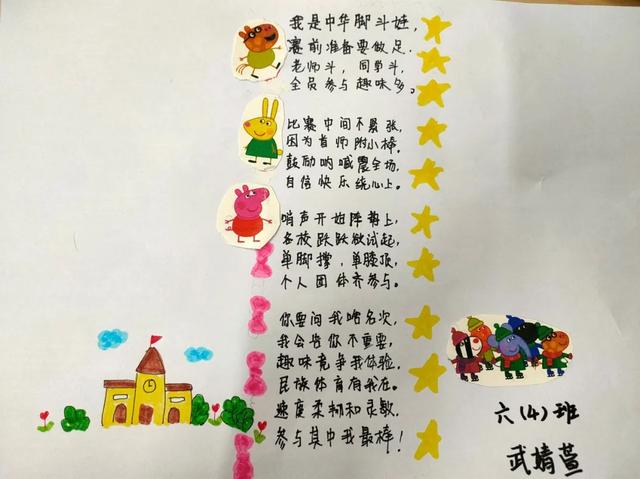 我是中华脚斗娃，
赛前准备要做足。
老师斗，同学斗，
全员参与趣味多。
比赛中间不紧张，
因为首师附小棒。
鼓励呐喊震全场，
自信快乐绕心上。
哨声开始阵势上，
名校跃跃欲试起，
单脚撑，单膝顶，
个人团体齐参与。
你要问我啥名次，
我会告你不重要，
趣味竞争我体验，
民族体育有我在。
速度柔韧和灵敏，
参与其中我最棒！
六(4)班
武婧萱